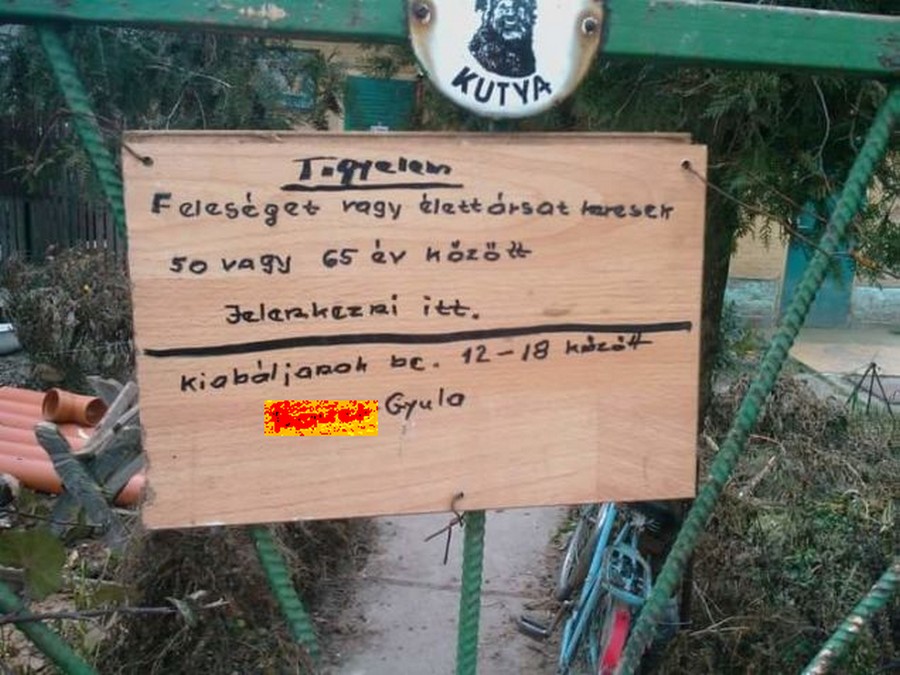 KUTYA
Figyelem
Feleséget vagy élettársat keresek
50 vagy 65 év között
Jelenkezni itt.
kiabáljanak be. 12-18 között
Gyula